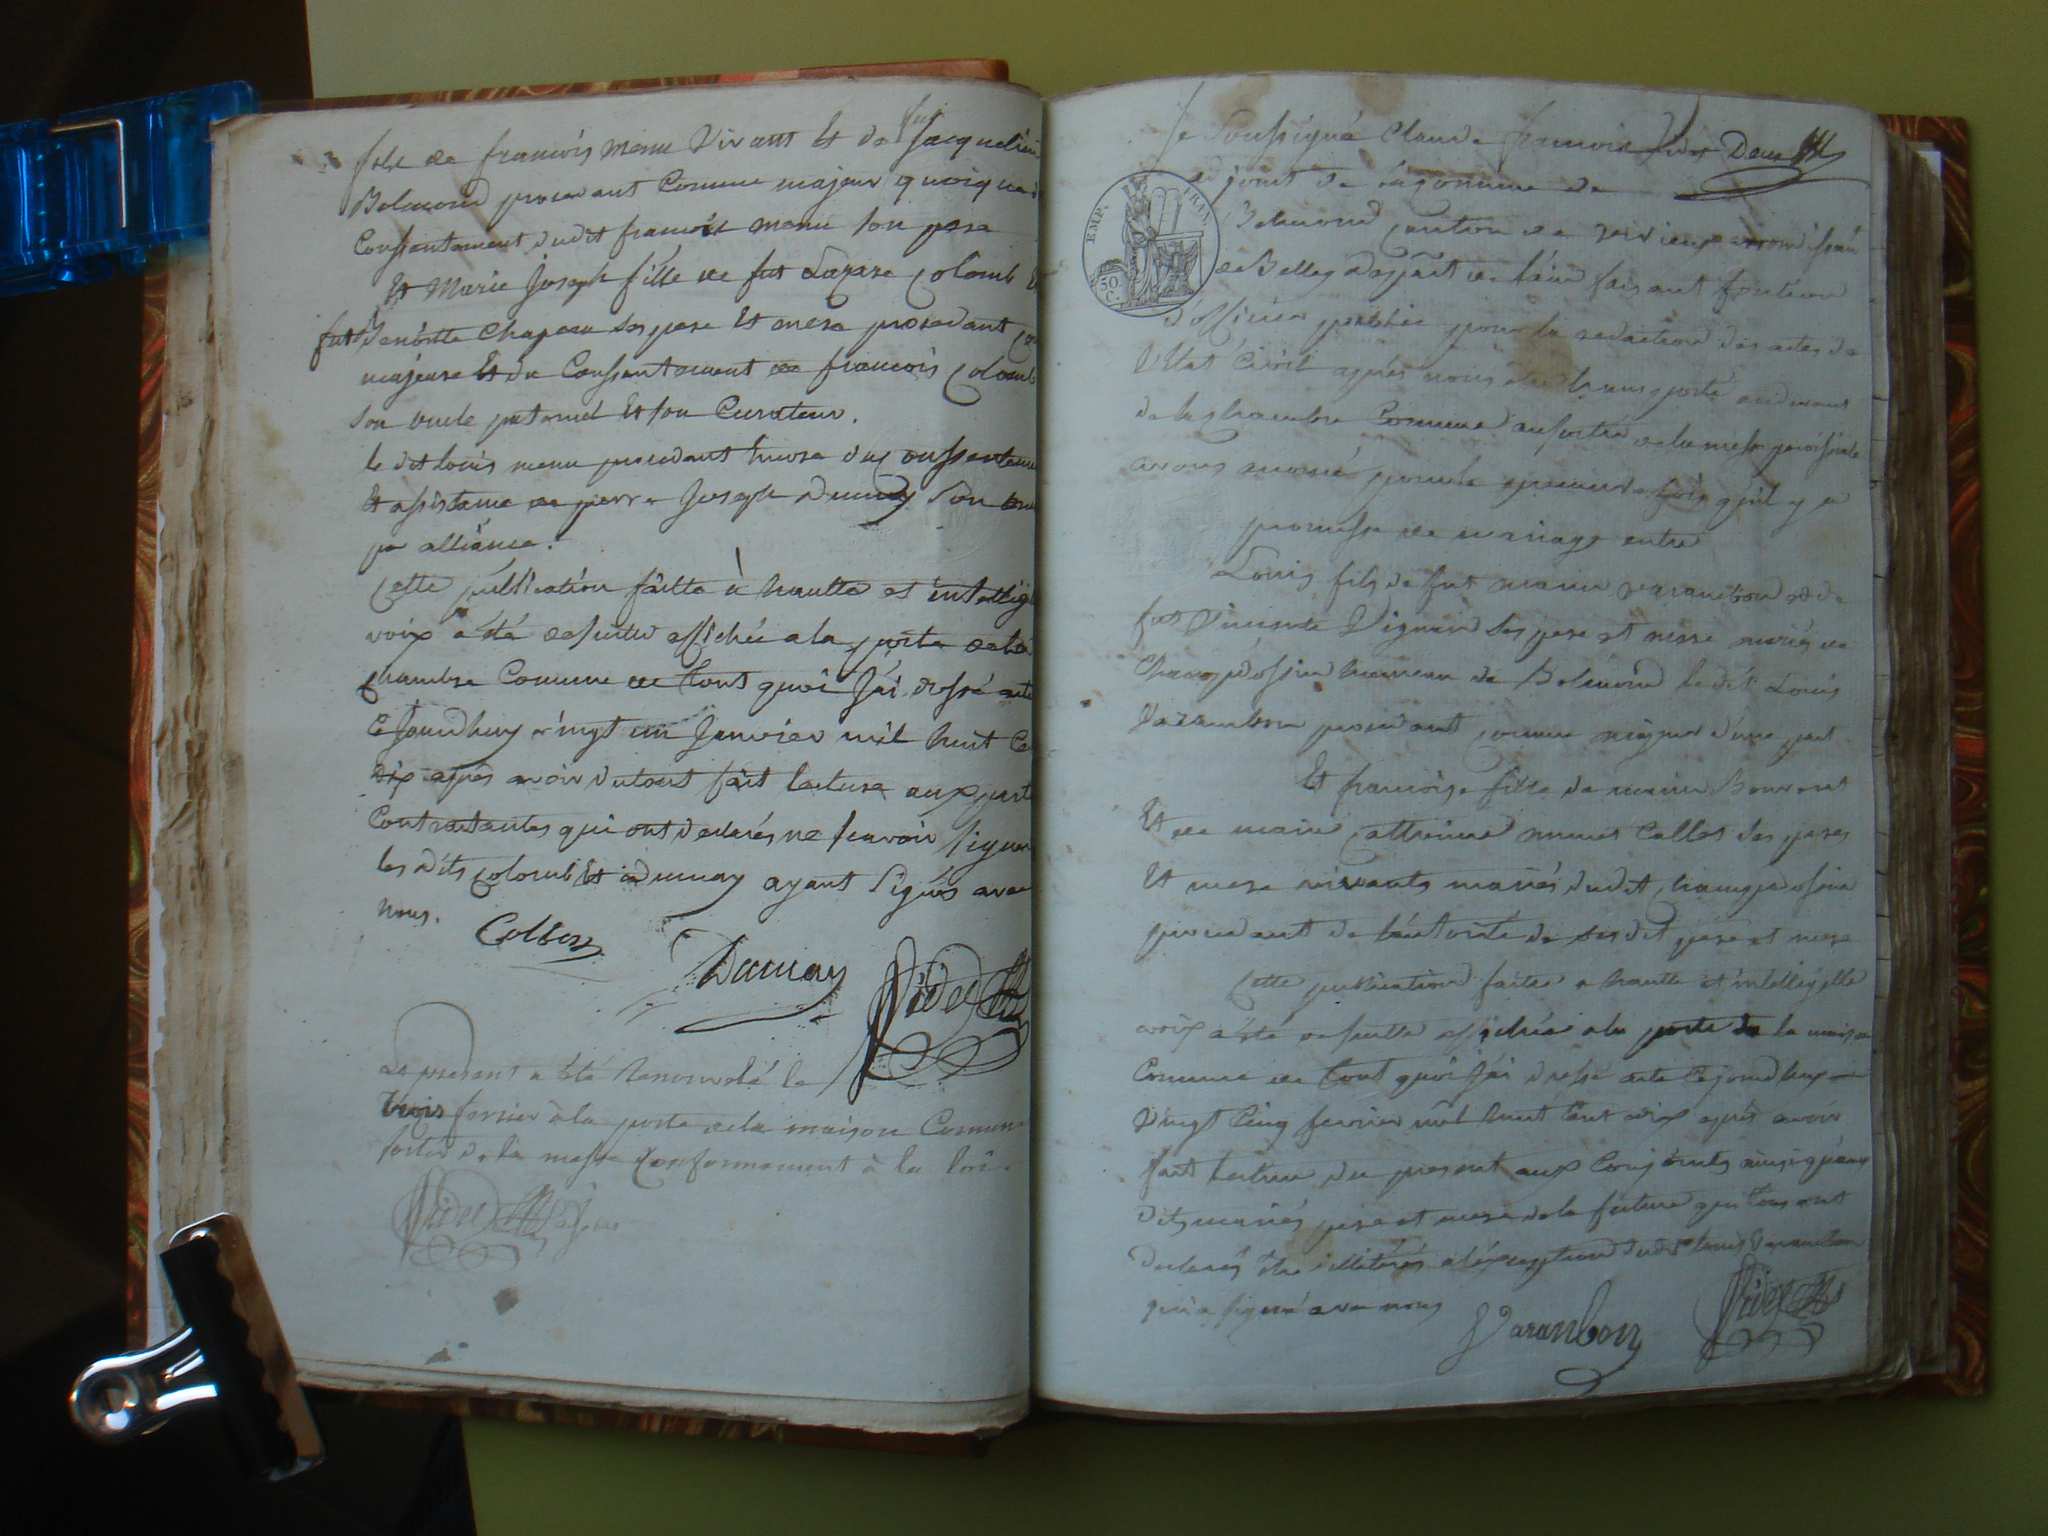 fils de francois menu vivant et de fut Jacqueline
Belmond procedant Comme majeur quoique
Consentement dudit francois menu son pere
Et Marie Joseph fille de fut Lazare Colomb
fut Benoitte Chapeau ses pere Et mere procedant
majeure Et du Consentement de francois Colomb
son oncle paternel Et son Curateur.
le dit louis menu procedant encore du Consentement
Et assistance de pierre Joseph Dumay son
par alliance.
Cette publication faitte à hautte et intelligi
voix a été desuitte affichée a la porte de la
chambre Commune de tout quoi J'ai dressé acte
Cejourdhuy vingt un Janvier mil huit Ce
dix après avoir dutout fait lecture aux parti
Contractantes qui ont declarés ne scavoir signer
les dits Colomb Et Dumay ayant signés avec
nous.
Collon
Dumay
Videt
Le present a été renouvelé le
trois fevrier à la porte de la maison Commune
sortir de la messe Conformement à la loi.
Videt adjoint
Je Soussigné Claude francois Videt
adjoint de la Commune de
EMP. FRAN.
50 C.
Belmond Canton de virieux arrondissem
de Belley Depart de l'ain faisant fonction
d'officier public pour la redaction des actes de
l'Etat Civil après nous être transporté audevant
de la chambre Commune ausortir de la messe paroissiale
avons anoncé pour la premiere fois qu'il y a
promesse de mariage entre
Louis fils de fut Varambon et de
fut ses pere et mere mariés de
hameau de Belmond le dit Louis
Varambon procedant comme majeur d'une part
Et francoise fille de
Et de Catherine Callet ses peres
Et mere vivants mariés dudit
procedant de l'autorité de sesdit pere et mere
Cette publication faitte a hautte et intelligible
voix a été desuitte affichée a la porte de la maison
Commune de tout quoi J'ai dressé acte Cejourdhuy
vingt Cinq fevrier mil huit Cent dix après avoir
fait lecture du present aux Conjoints ainsi qu'aux
dits mariés pere et mere de la future qui tous ont
declarés être illiterés a l'exception dudit louis Varambon
qui a signé avec nous
Varanbon
Videt